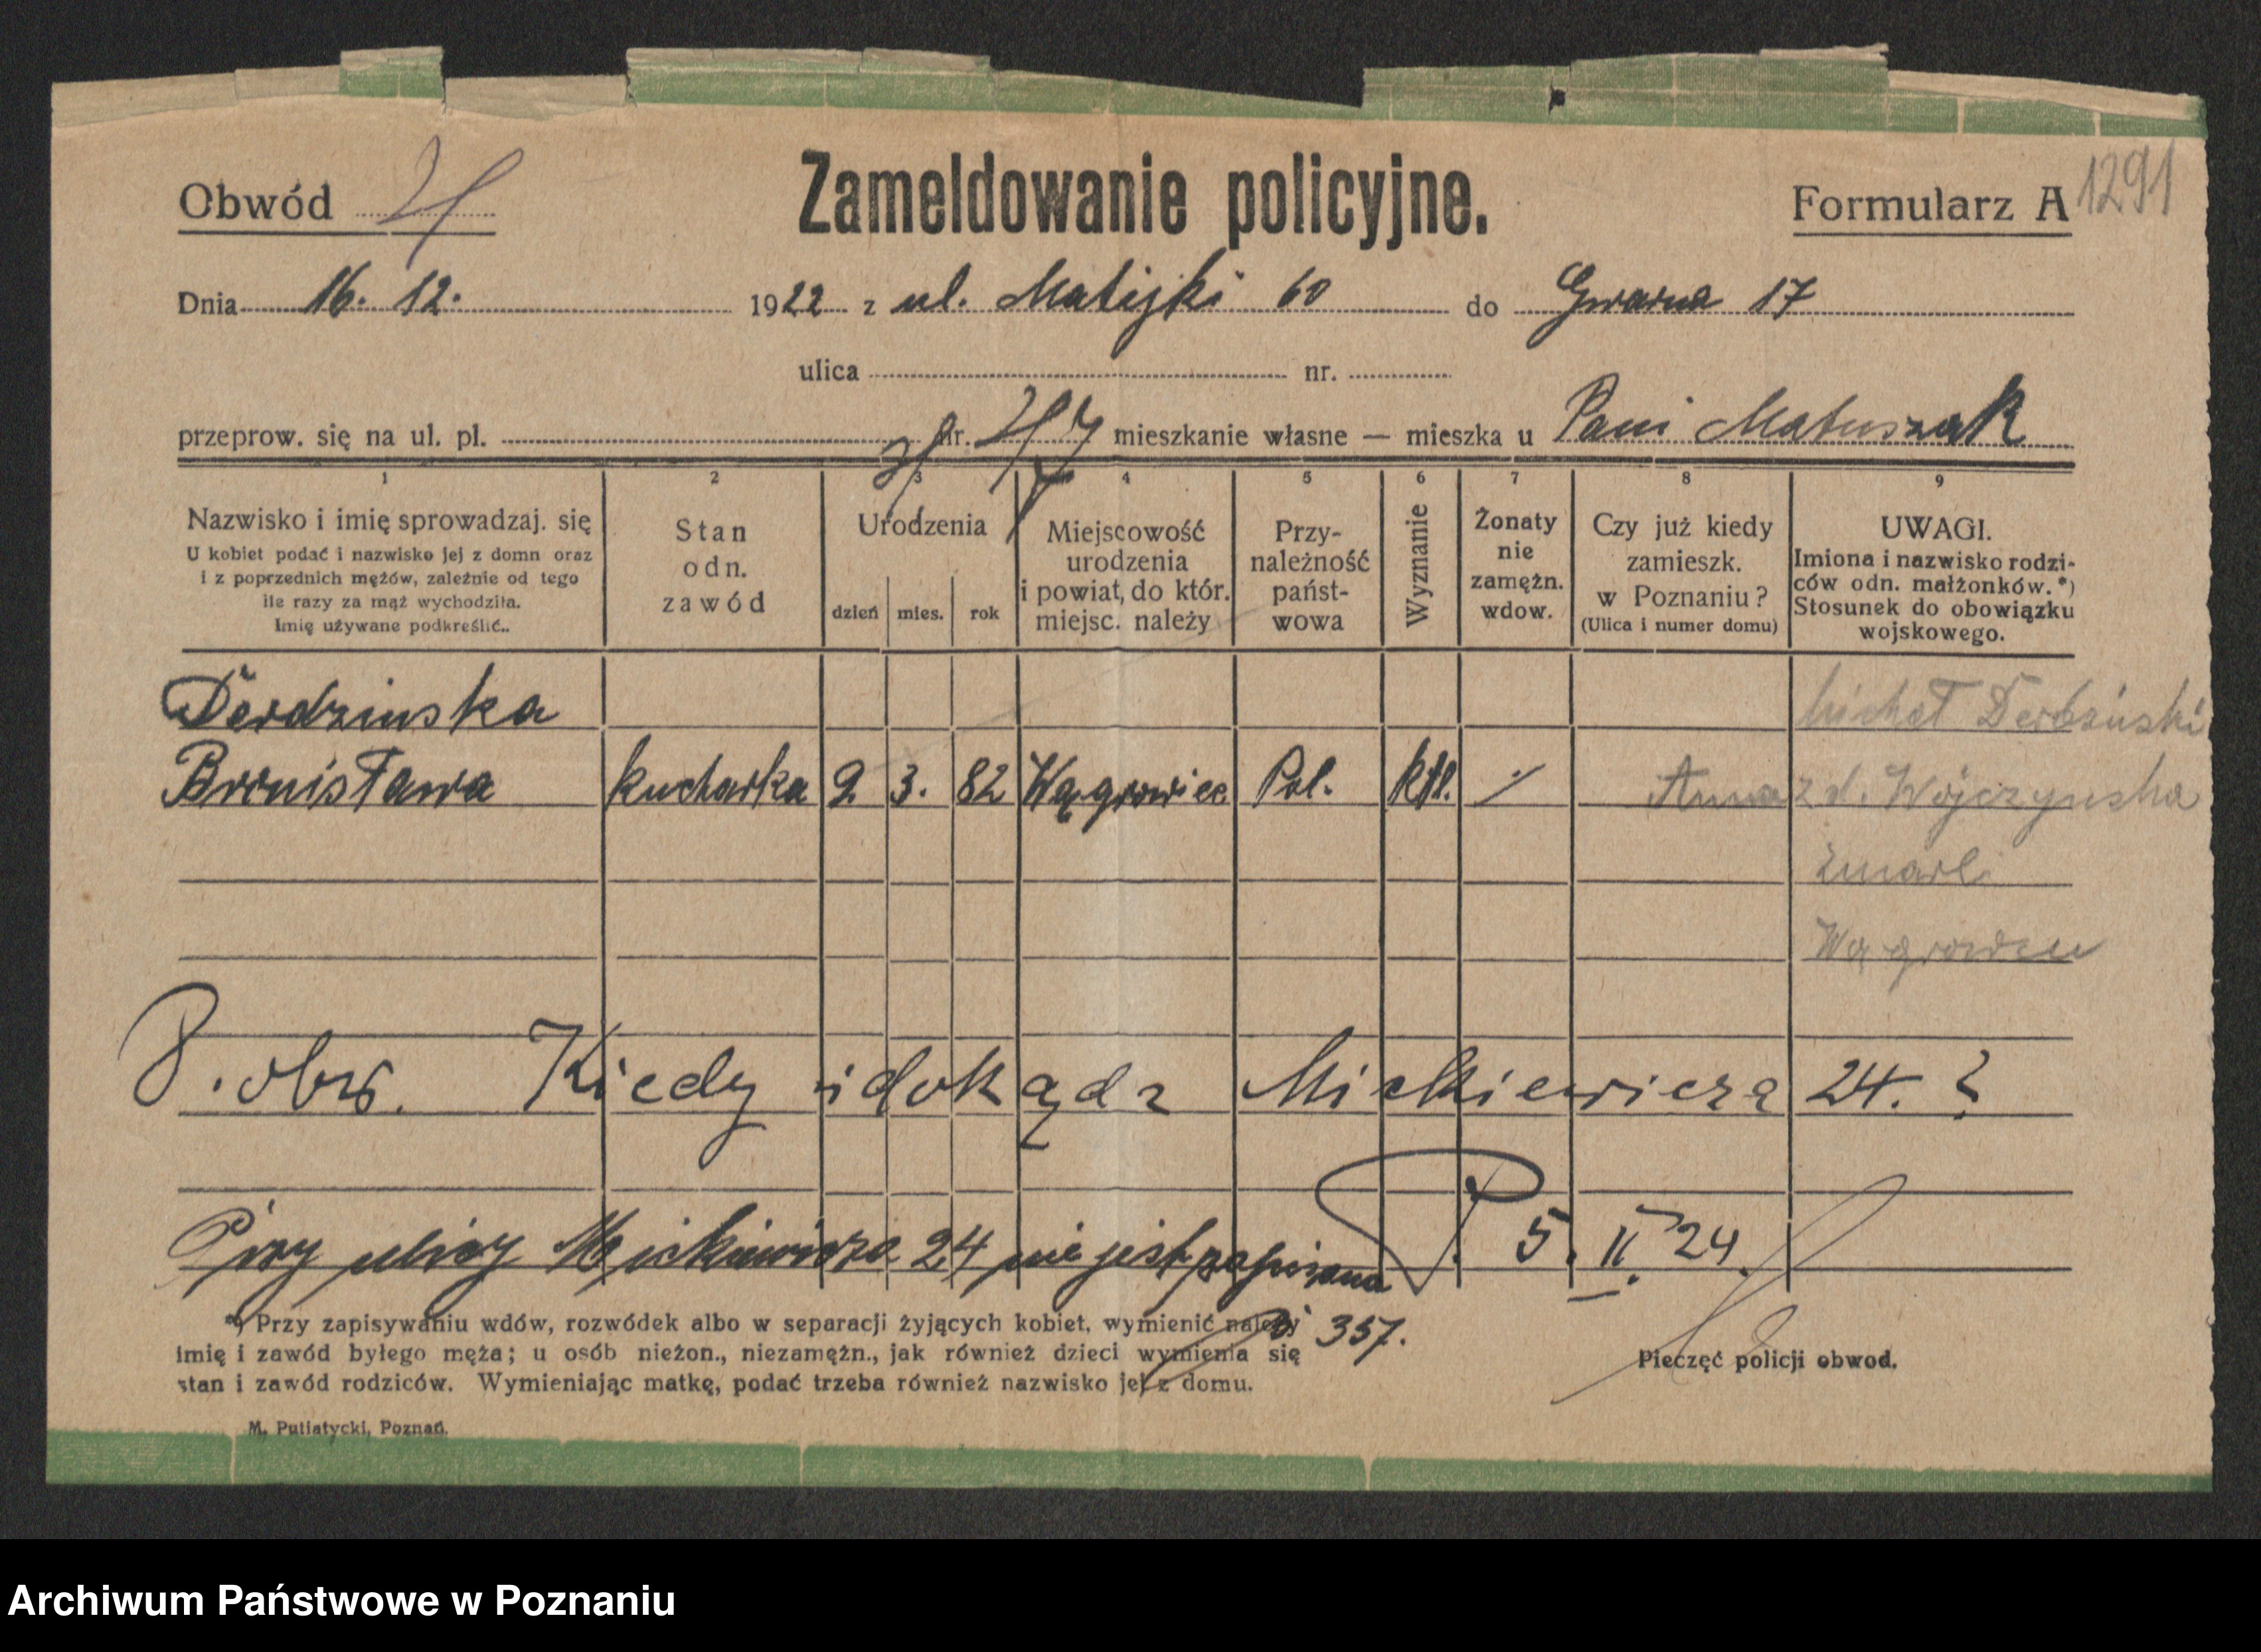 1291
Obwód
Zameldowanie policyjne.
Formularz A
Dnia 16. 12. 1922 z ul. Matejki 60 do Gwarna 17
ulica nr.
przeprow. się na ul. pl. nr. mieszkanie własne — mieszka u Pani Matuszak
1 2 3 4 5 6 7 8 9
Nazwisko i imię sprowadzaj. się
U kobiet podać i nazwisko jej z domn oraz
i z poprzednich mężów, zależnie od tego
ile razy za mąż wychodziła.
Imię używane podkreślić..
Stan
odn.
zawód
Urodzenia
dzień mies. rok
Miejscowość
urodzenia
i powiat, do któr.
miejsc. należy
Przy-
należność
państ-
wowa
Wyznanie
Żonaty
nie
zamężn.
wdow.
Czy już kiedy
zamieszk.
w Poznaniu?
(Ulica i numer domu)
UWAGI.
Imiona i nazwisko rodzi-
ców odn. małżonków.*)
Stosunek do obowiązku
wojskowego.
Derdzinska Michał Derdziński
Bronisława kucharka 2. 3. 82 Wągrowiec Pol. ktl. Anna z d. Wójczynska
zmarli
Wągrowcu
P. obw. Kiedy i dokąd z Mickiewicza 24. ?
5. II. 24.
Przy ulicy Mickiewicza 24 nie jest zapisana
357.
*) Przy zapisywaniu wdów, rozwódek albo w separacji żyjących kobiet, wymienić należy
imię i zawód byłego męża; u osób nieżon., niezamężn., jak również dzieci wymienia się
stan i zawód rodziców. Wymieniając matkę, podać trzeba również nazwisko jej z domu.
Pieczęć policji obwod.
M. Putiatycki, Poznań.
Archiwum Państwowe w Poznaniu